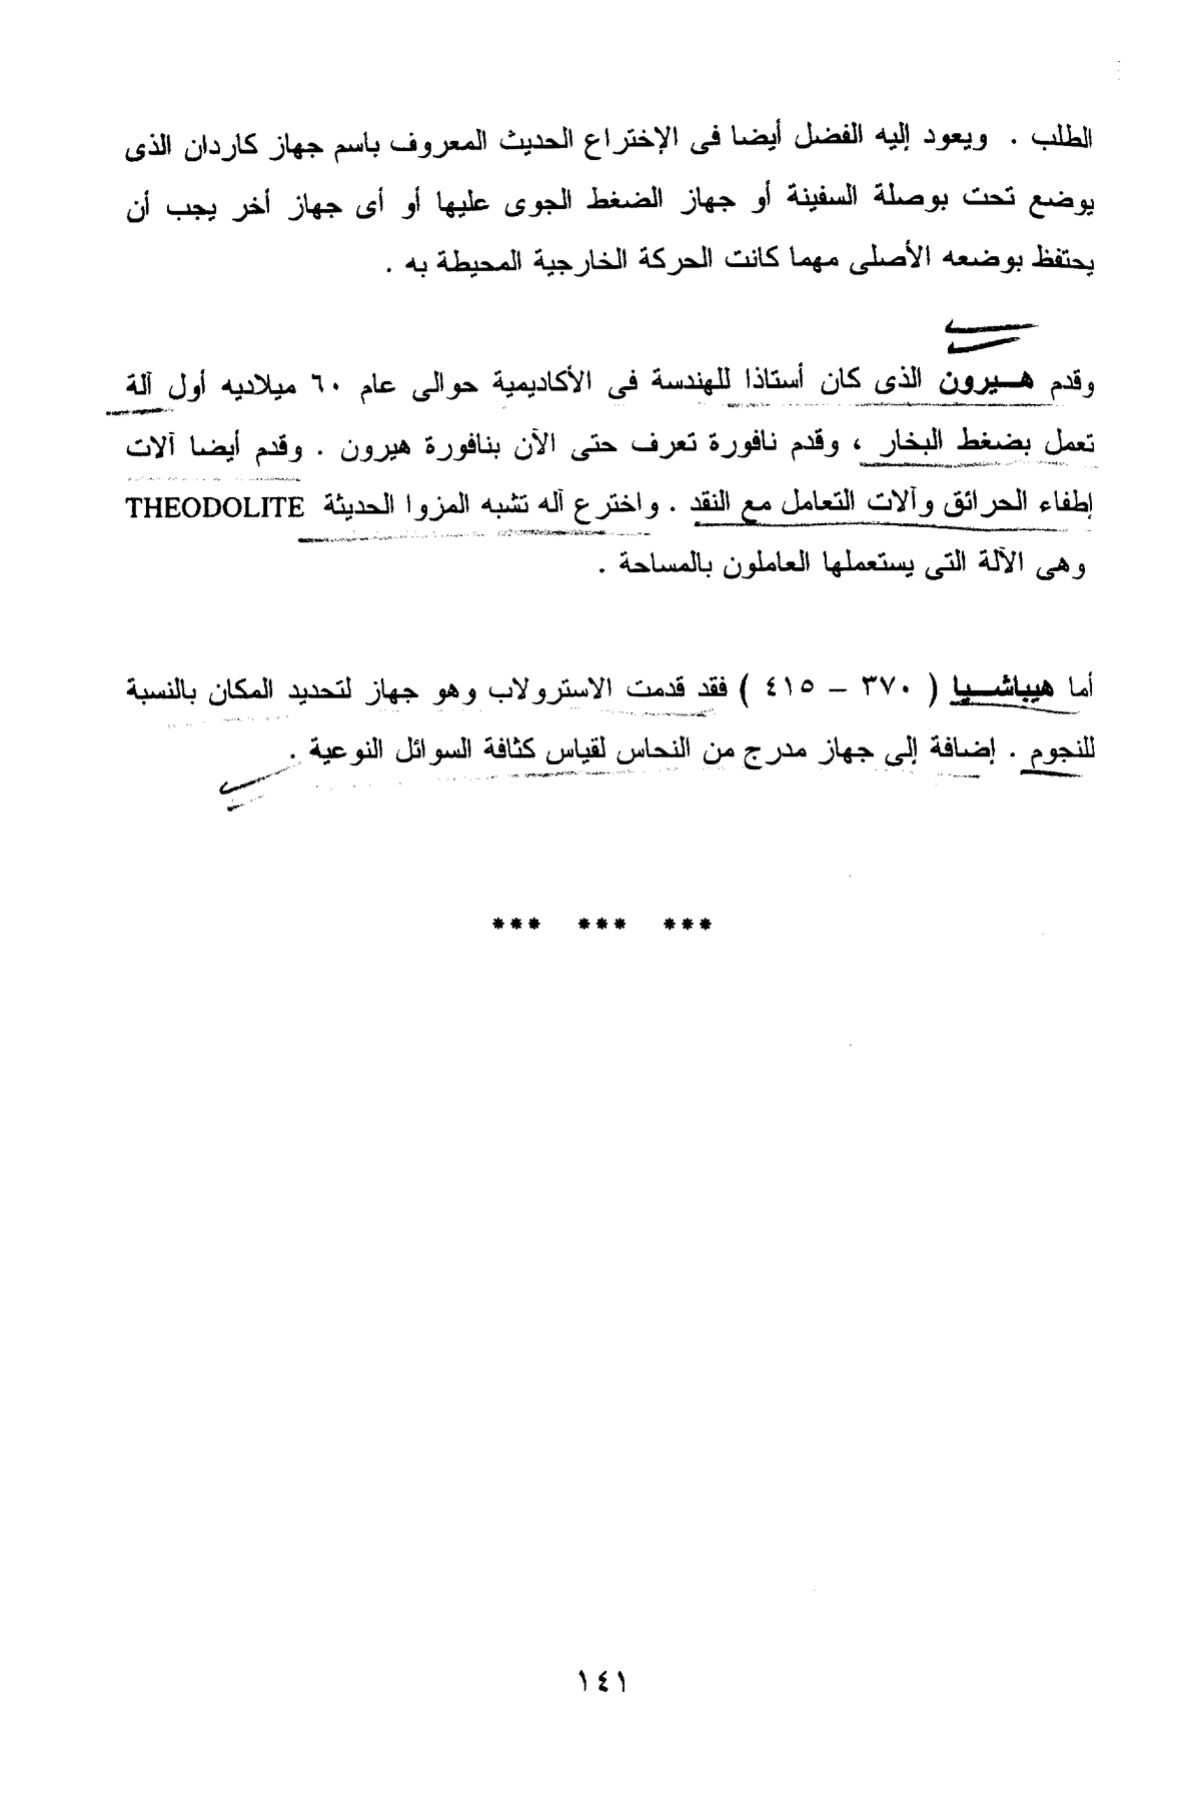 الطلب . ويعود إليه الفضل أيضا فى الإختراع الحديث المعروف باسم جهاز كاردان الذى
يوضع تحت بوصلة السفينة أو جهاز الضغط الجوى عليها أو أى جهاز أخر يجب أن
يحتفظ بوضعه الأصلى مهما كانت الحركة الخارجية المحيطة به .
وقدم هـــيرون الذى كان أستاذا للهندسة فى الأكاديمية حوالى عام ٦٠ ميلاديه أول آلة
تعمل بضغط البخار ، وقدم نافورة تعرف حتى الآن بنافورة هيرون . وقدم أيضا آلات
إطفاء الحرائق وآلات التعامل مع النقد . واخترع آله تشبه المزوا الحديثة THEODOLITE
وهى الآلة التى يستعملها العاملون بالمساحة .
أما هيباشـــيا ( ٣٧٠ – ٤١٥ ) فقد قدمت الاسترولاب وهو جهاز لتحديد المكان بالنسبة
للنجوم . إضافة إلى جهاز مدرج من النحاس لقياس كثافة السوائل النوعية .
*** *** ***
١٤١